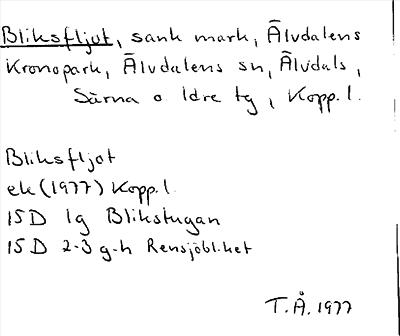 Bliksfljot, sank mark, Älvdalens
Kronopark, Älvdalens sn, Älvdals,
Särna o Idre tg, Kopp.l.
Bliksfljot
ek (1977) Kopp.l.
15D 1g Blikstugan
15D 2-3 g-h Rensjöbliket
T.Å. 1977